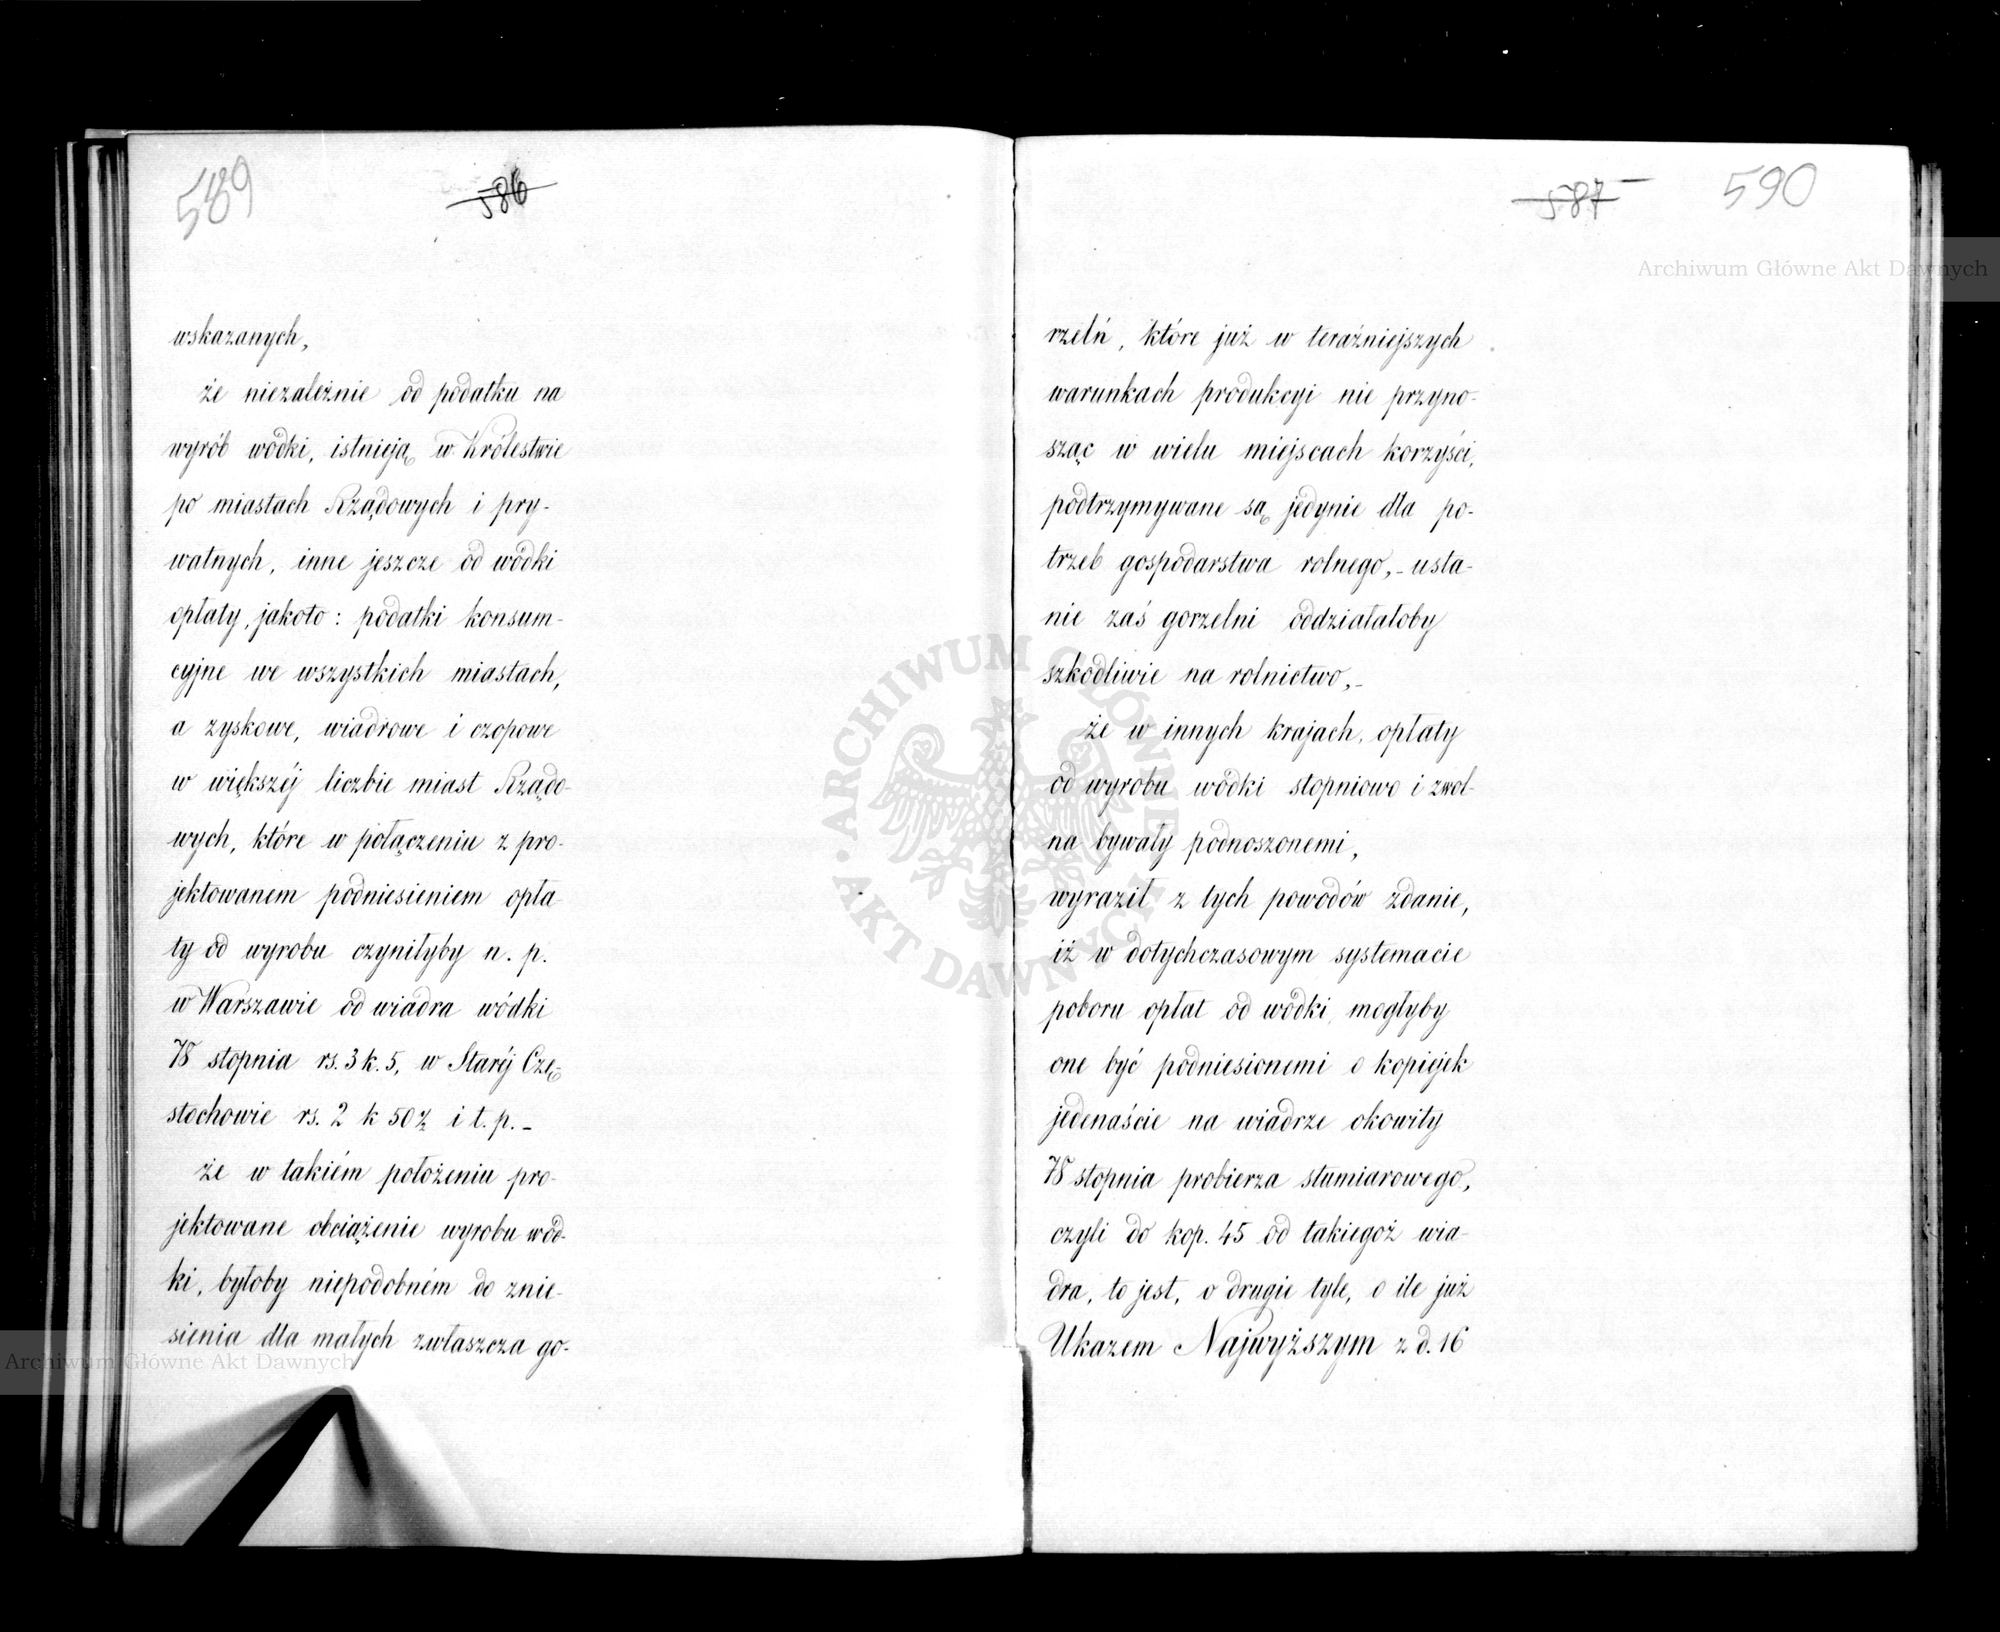 589
586
wskazanych,
że niezależnie od podatku na
wyrób wódki, istnieją w Królestwie
po miastach Rządowych i pry-
watnych, inne jeszcze od wódki
opłaty, jakoto: podatki konsum-
cyjne we wszystkich miastach,
a zyskowe, wiadrowe i czopowe
w większéj liczbie miast Rządo-
wych, które w połączeniu z pro-
jektowanem podniesieniem opła-
ty od wyrobu czyniłyby n. p.
w Warszawie od wiadra wódki
78 stopnia rs. 3 k. 5, w Staréj Czę-
stochowie rs. 2 k 50½ i t. p. –
że w takiém położeniu pro-
jektowane obciążenie wyrobu wód-
ki, byłoby niepodobném do znie-
sienia dla małych zwłaszcza go-
587
590
rzelń, które już w teraźniejszych
warunkach produkcyi nie przyno-
sząc w wielu miejscach korzyści,
podtrzymywane są jedynie dla po-
trzeb gospodarstwa rolnego, – usta-
nie zaś gorzelni oddziałałoby
szkodliwie na rolnictwo, –
że w innych krajach, opłaty
od wyrobu wódki stopniowo i zwol-
na bywały podnoszonemi,
wyraził z tych powodów zdanie,
iż w dotychczasowym systemacie
poboru opłat od wódki, mogłyby
one być podniesionemi o kopiejek
jedenaście na wiadrze okowity
78 stopnia probierza stumiarowego,
czyli do kop. 45 od takiegoż wia-
dra, to jest, o drugie tyle, o ile już
Ukazem Najwyższym z d. 16
Archiwum Główne Akt Dawnych
Archiwum Główne Akt Dawnych
ARCHIWUM GŁÓWNE AKT DAWNYCH